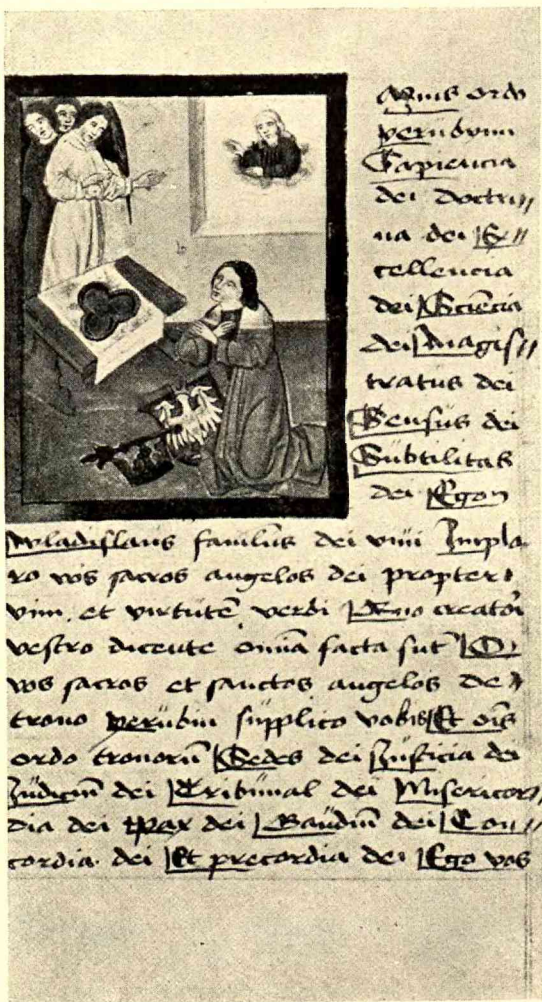 ordo
Sapiencia
dei doctri//
na dei Ex//
cellencia
dei Sciencia
dei Magis//
tratus dei
Sensus dei
Subtilitas
dei Egon
wladislaus famulus dei vivi Implo
ro vos sacros angelos dei propter
vim et virtutem verbi creatori
vestro dicente omnia facta sunt O
vos sacros et sanctos angelos de
trono supplico vobis Et omnis
ordo tronorum Sedes dei Justicia dei
Judicium dei Tribunal dei Misericor//
dia dei Pax dei Gaudium dei Con//
cordia dei Et precordia dei Ego vos